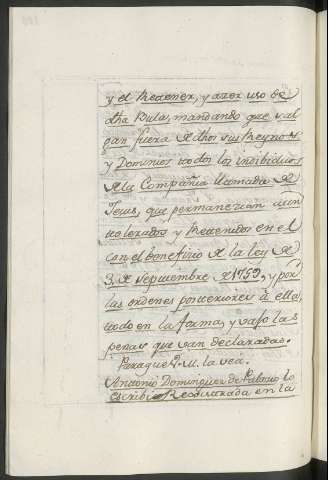 y el Retener, y azer uso de
dha Bula, mandando que sal
gan fuera de dhos sus Reynos
y Dominios todos los individuos
de la Compañia llamada de
Jesus, que permanezian aun
tolerados y Retenidos en el
con el beneficio de la ley de
3, de Septiembre de 1759, y por
las ordenes posteriores a ella,
todo en la forma, y vajo las
penas que van declaradas.
Paraque V. M. la vea.
Antonio Dominguez de Palacio lo
escribi Rexistrada en la